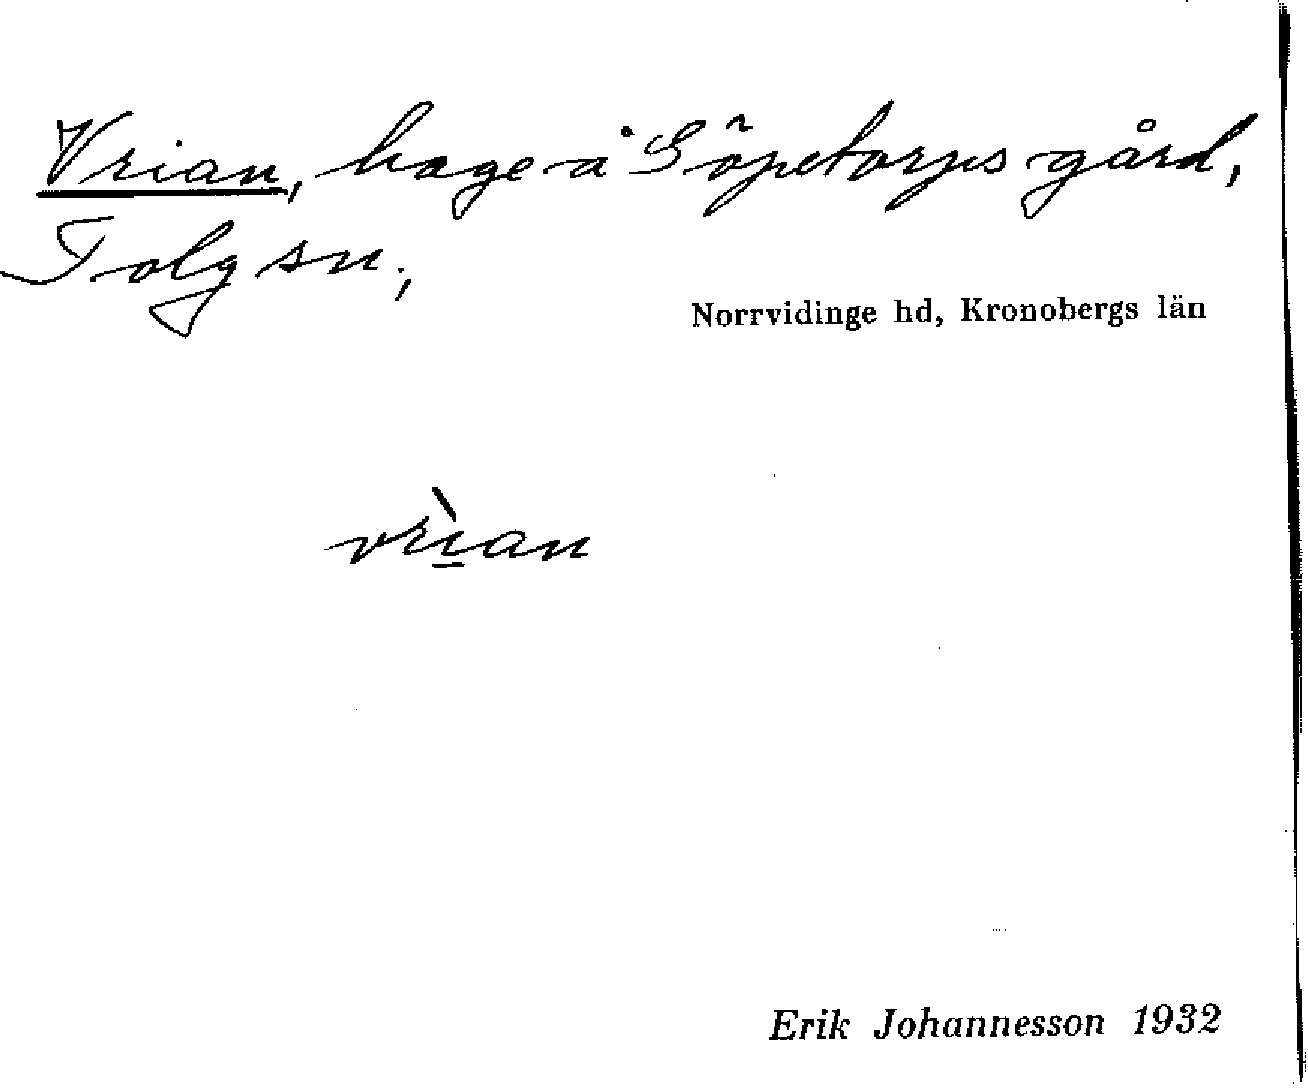 Vrian, hage å Söpetorps gård,
Tolg sn.,
Norrvidinge hd, Kronobergs län
vrìan
Erik Johannesson 1932